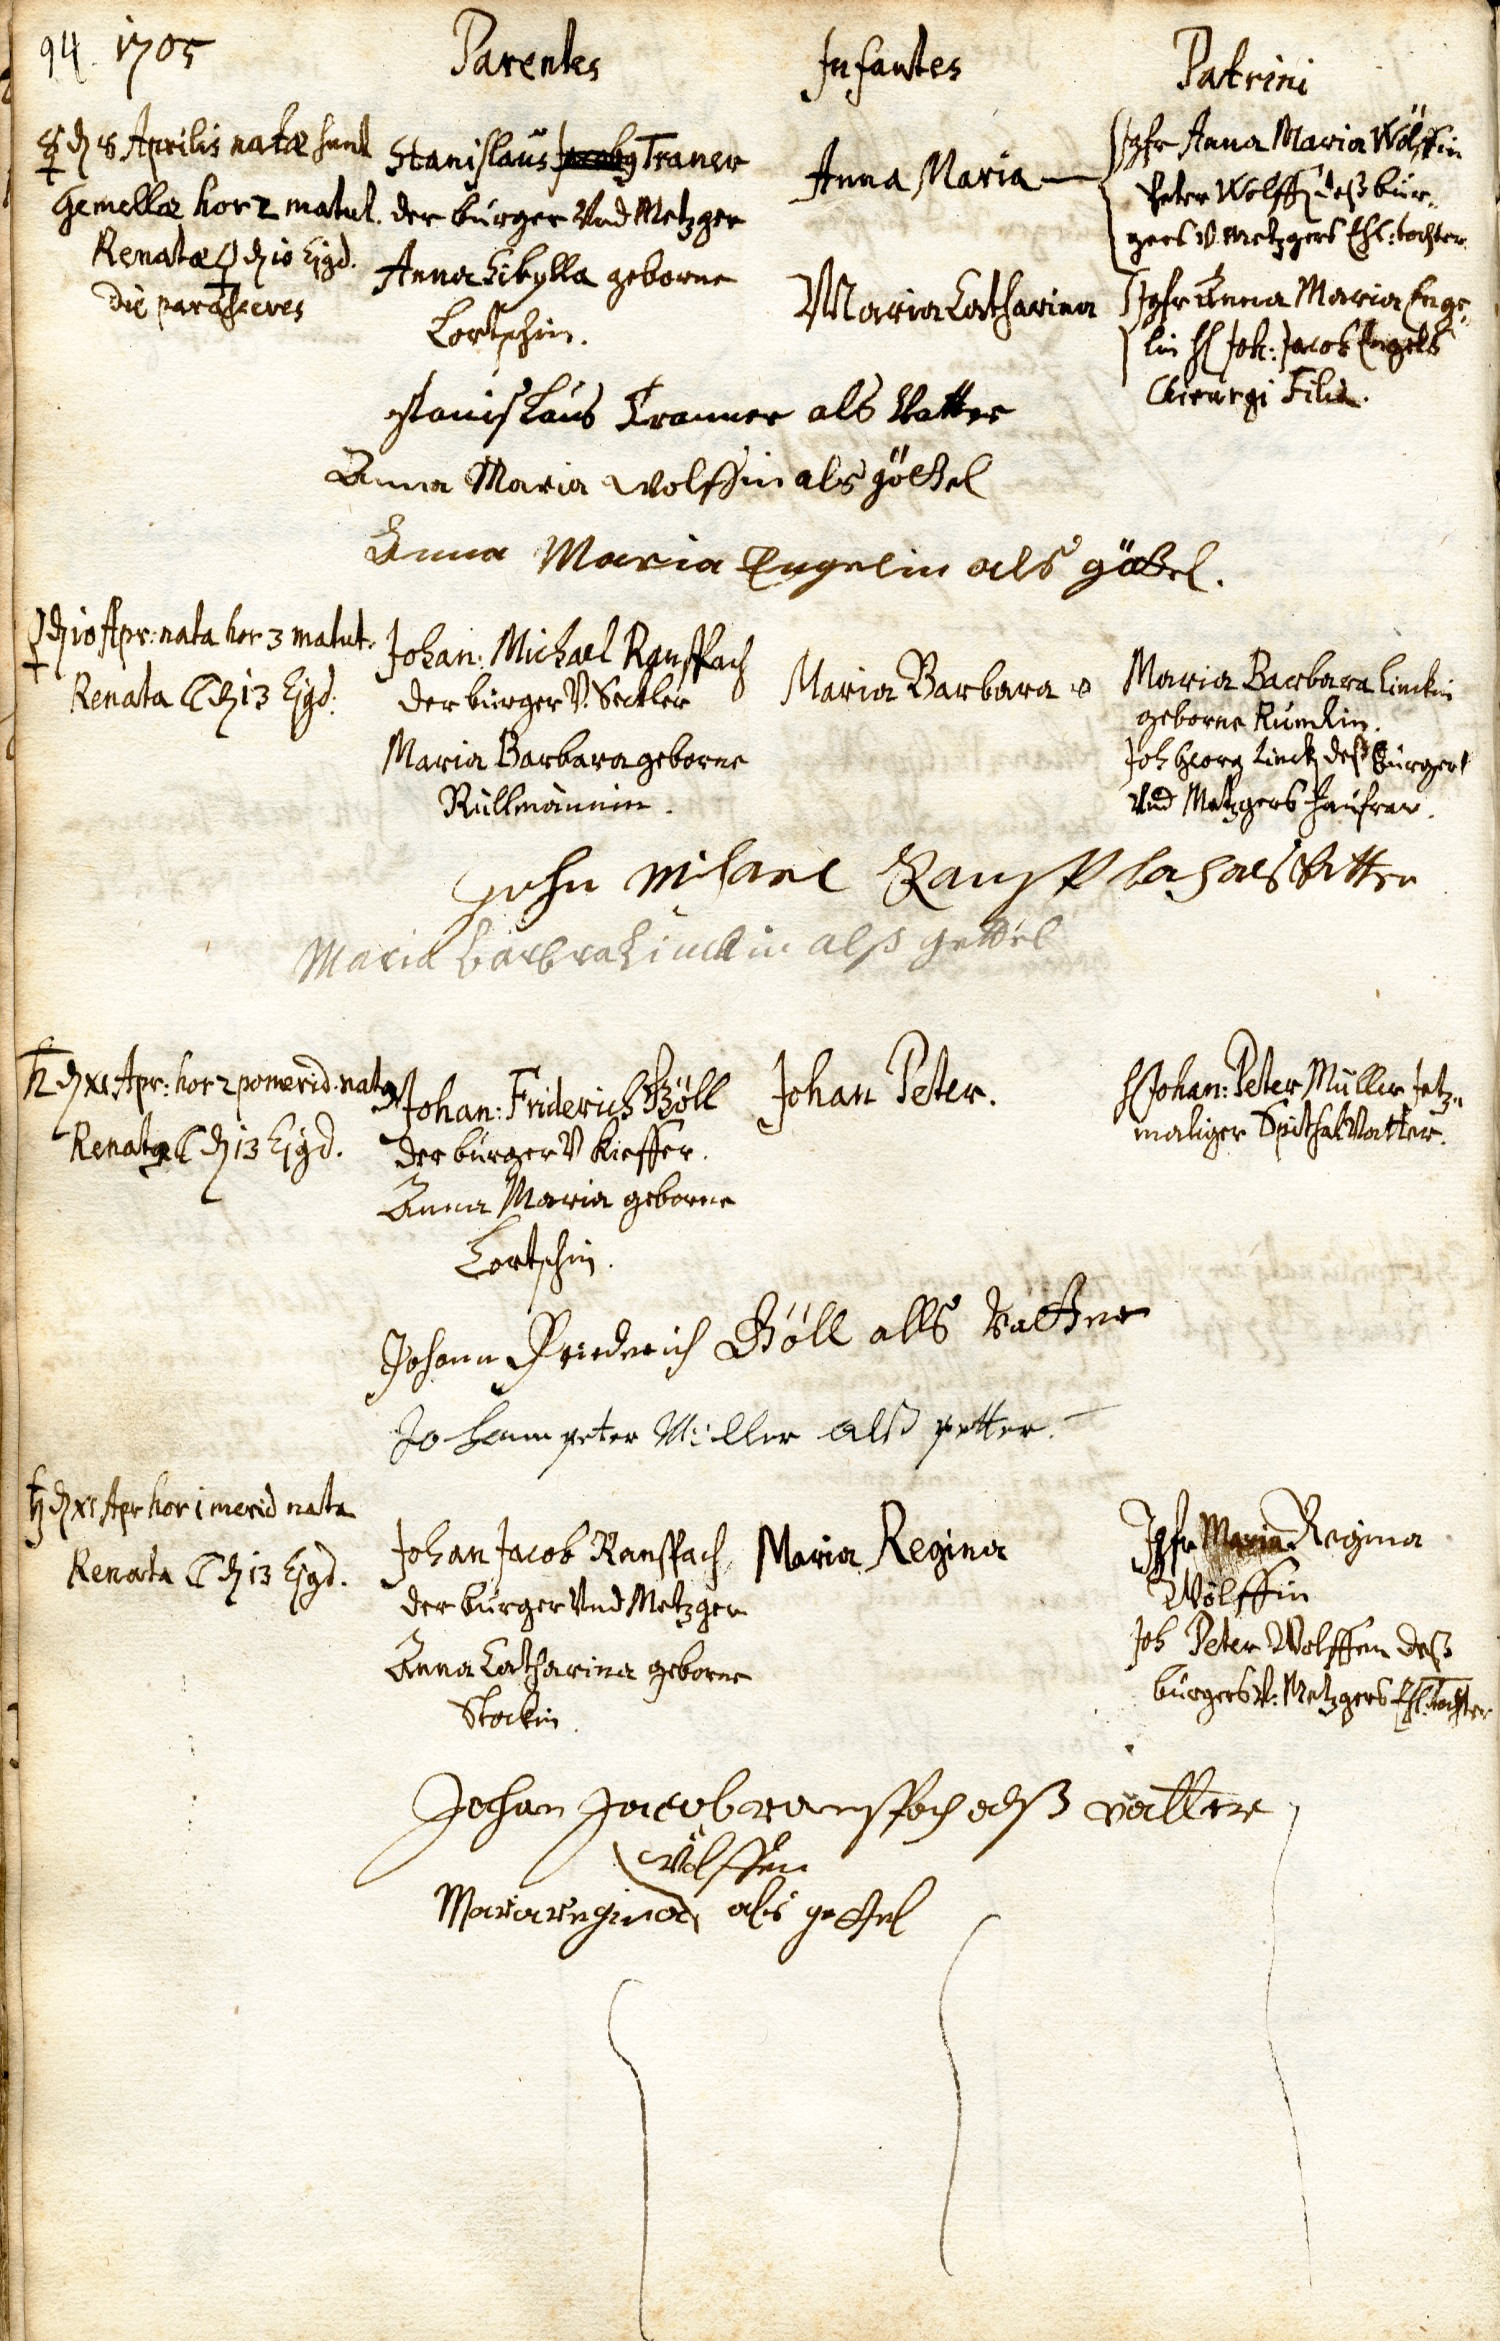 94. 1705
Parentes
Infantes
Patrini
☿ d. 8 Aprilis natæ sunt
Gemellæ hor 2 matut.
Renatæ ♀ d. 10 Ejsd.
die parasceves
Stanislaüs Traner
der burger Vnd Metzger
Anna Sibylla geborne
Lortschin.
Anna Maria
Maria Catharina
Jgfr Anna Maria Wölffin
Peter Wolffs deß bur„
gers V. Metzgers Ehl: tochter
Jgfr Anna Maria Enge„
lin H Joh: Jacob Engels
Chirurgi Filia.
stanislaus Tranner als Vatter
Anna Maria wolffin als göttel
Anna Maria Engelin als göttel.
♀ d. 10 Apr: nata hor 3 matut.
Renata ☾ d. 13 Ejsd.
Johan: Michael Ranspach
der burger V. Seckler
Maria Barbara geborne
Rüllmännin.
Maria Barbara
Maria Barbara Linckin
geborne Rümlin.
Joh Georg Linck deß Bürgers
Vnd Metzgers Haußfraw.
Johan Michael Ranspach als Vatter
Maria barbra Linckin alß gettel
♄ d. XI Apr: hor 2 pomerid. natus
Renatus ☾ d. 13 Ejsd.
Johan: Friderich Böll
der burger V Kieffer.
Anna Maria geborne
Lortschin.
Johan Peter.
H Johan: Peter Müller Jetz„
maliger Spithal Vatter.
Johann Friedrich Böll alls Vatter
Johann peter Müller alß petter.
♄ d. XI Apr hor 1 merid nata
Renata ☾ d. 13 Ejsd.
Johan Jacob Ranspach
der burger Vnd Metzger
Anna Catharina geborne
Stockin.
Maria Regina
Jgfr Maria Regina
Wölffin
Joh Peter Wolffen deß
burgers V. Metzgers Ehl. tochter
Johan Jacob ranspach alß vatter
wölffin
Maria regina als gettel